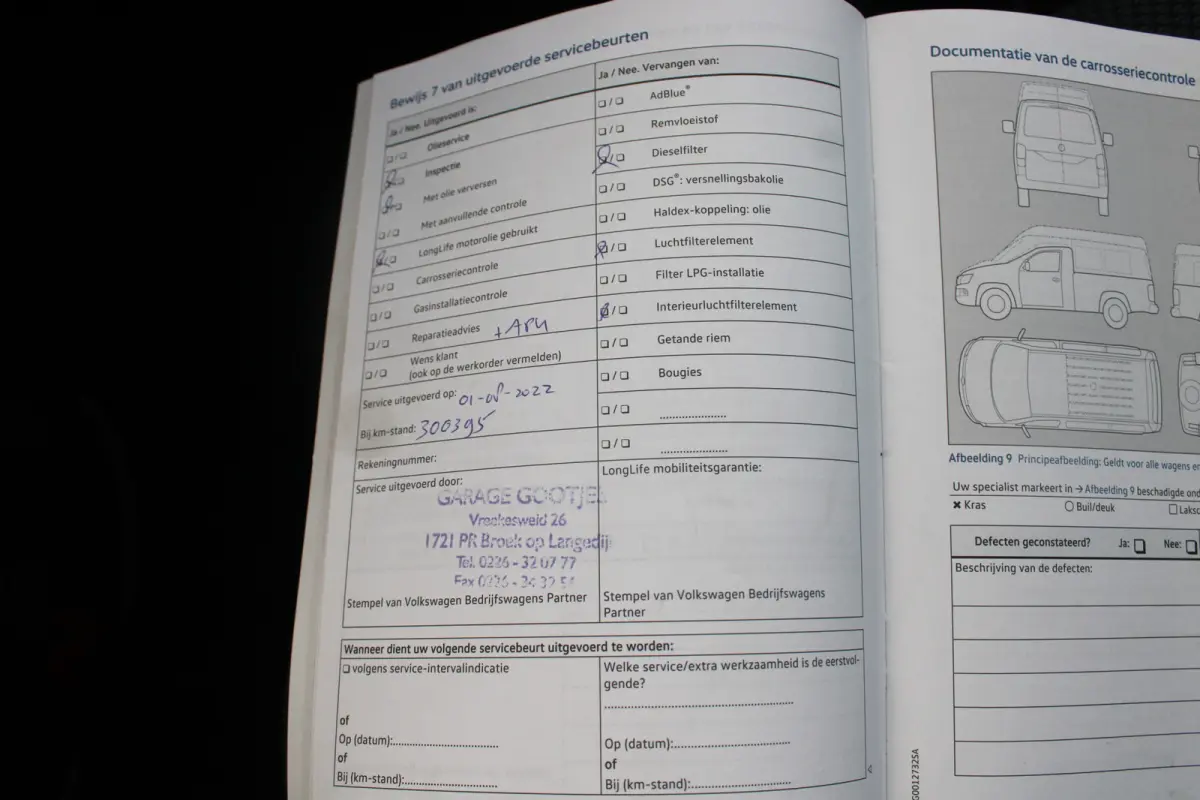 Bewijs 7 van uitgevoerde servicebeurten
Ja / Nee. Uitgevoerd is:
Olieservice
Inspectie
Met olie verversen
Met aanvullende controle
LongLife motorolie gebruikt
Carrosseriecontrole
Gasinstallatiecontrole
Reparatieadvies
Wens klant + APK
(ook op de werkorder vermelden)
Service uitgevoerd op: 01-08-2022
Bij km-stand: 300395
Rekeningnummer:
Service uitgevoerd door:
GARAGE GOOTJES
Vroekesweid 26
1721 PR Broek op Langedijk
Tel. 0226 - 32 07 77
Fax 0226 - 34 32 54
Stempel van Volkswagen Bedrijfswagens Partner
Ja / Nee. Vervangen van:
AdBlue®
Remvloeistof
Dieselfilter
DSG®: versnellingsbakolie
Haldex-koppeling: olie
Luchtfilterelement
Filter LPG-installatie
Interieurluchtfilterelement
Getande riem
Bougies
LongLife mobiliteitsgarantie:
Stempel van Volkswagen Bedrijfswagens
Partner
Wanneer dient uw volgende servicebeurt uitgevoerd te worden:
volgens service-intervalindicatie
of
Op (datum):
of
Bij (km-stand):
Welke service/extra werkzaamheid is de eerstvol-
gende?
Op (datum):
of
Bij (km-stand):
Documentatie van de carrosseriecontrole
Afbeelding 9 Principeafbeelding: Geldt voor alle wagens en
Uw specialist markeert in → Afbeelding 9 beschadigde ond
Kras Buil/deuk Laksc
Defecten geconstateerd? Ja: Nee:
Beschrijving van de defecten:
G0012732SA